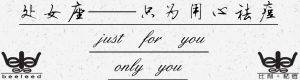 处女座——只为用心祛痘
just for you
only you
beeleed
比丽·祛痘